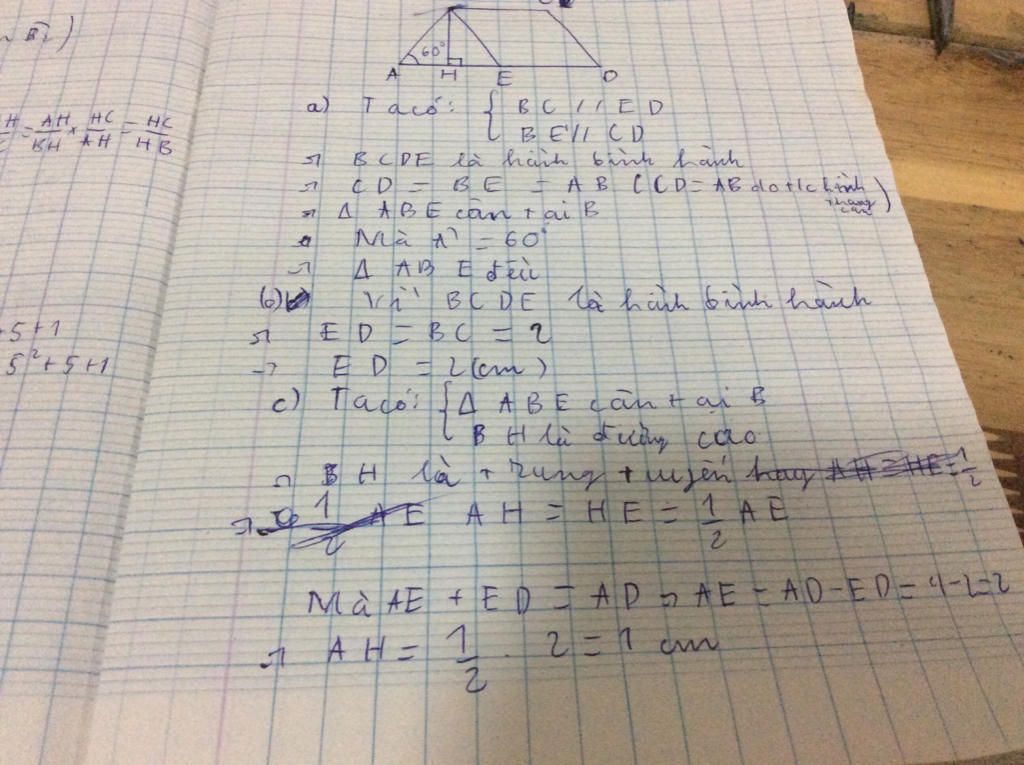 60°
A H E D
a) Ta có: { BC // ED
BE // CD
=> BCDE là hình bình hành
=> CD = BE = AB (CD = AB do t/c hình thang cân)
=> Δ ABE cân tại B
Mà A^ = 60°
=> Δ ABE đều
b) Vì BCDE là hình bình hành
=> ED = BC = 2
=> ED = 2(cm)
c) Ta có: { Δ ABE cân tại B
BH là đường cao
=> BH là trung tuyến hay AH = HE = 1/2
=> 1/2 AE AH = HE = 1/2 AE
Mà AE + ED = AD => AE = AD - ED = 4 - 2 = 2
=> AH = 1/2 . 2 = 1 cm
= AH/BH × HC/AH = HC/HB
+5+1
5²+5+1